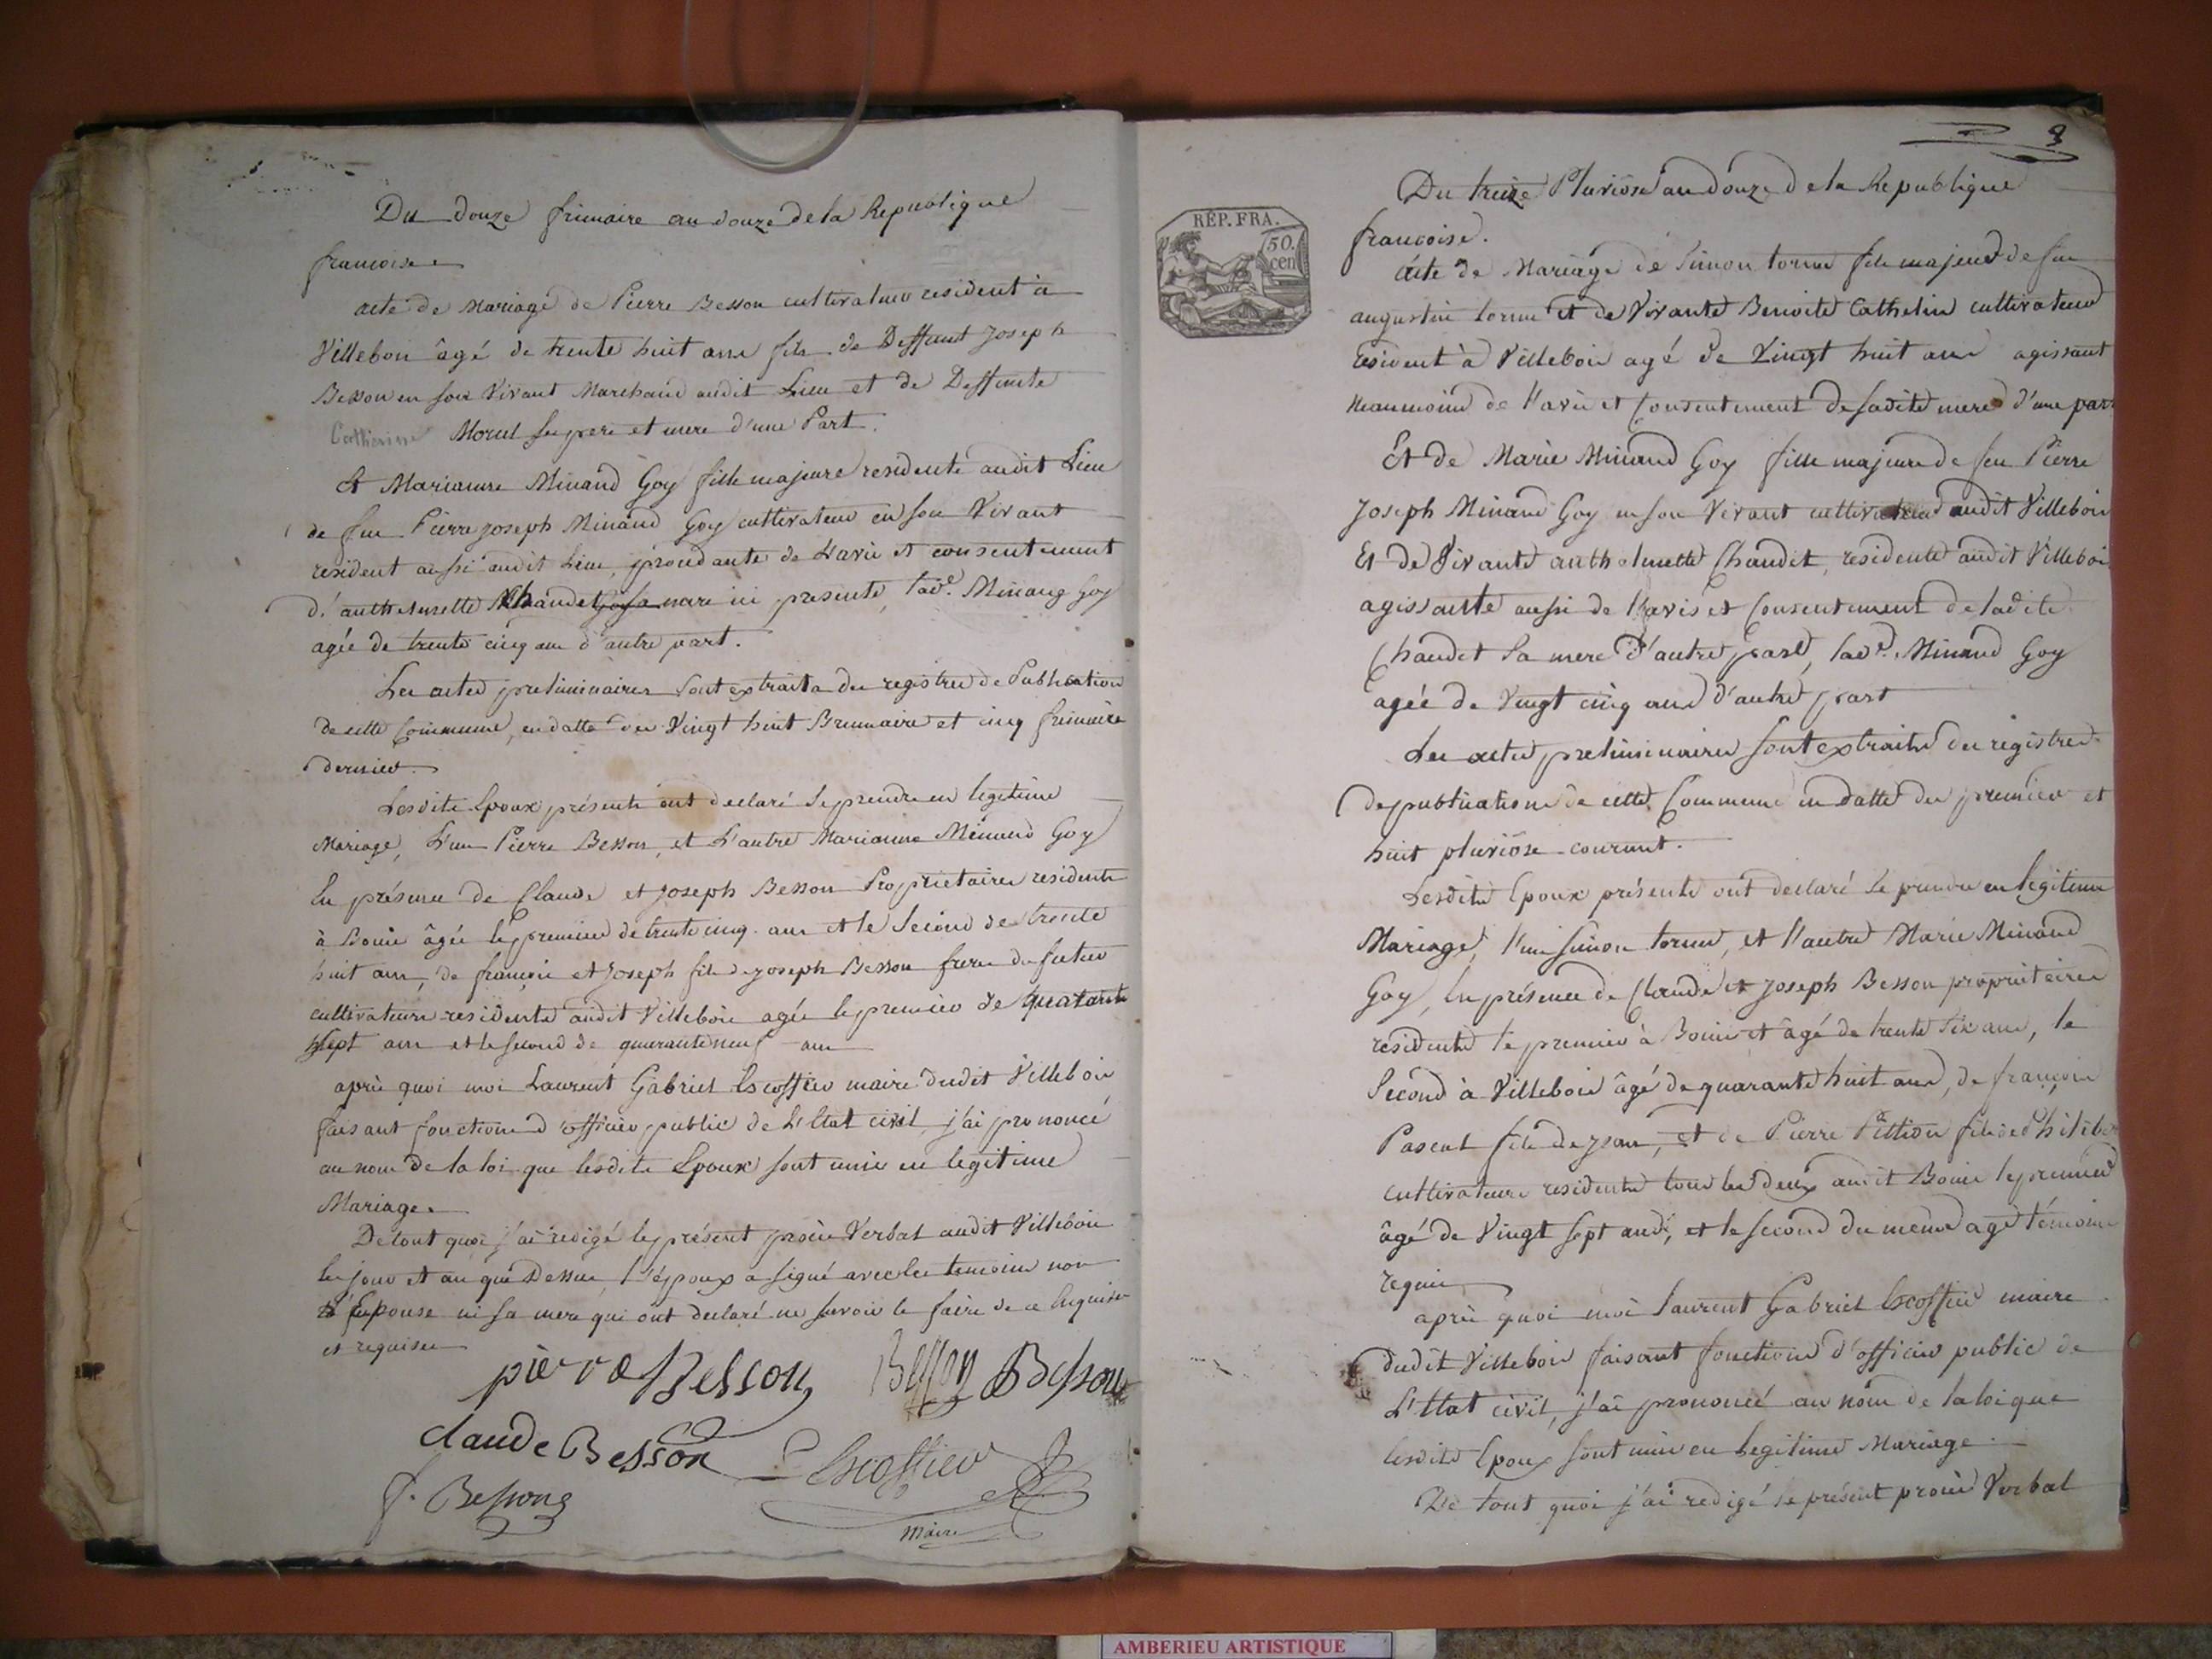 Du douze frimaire an douze de la Republique
francoise
acte de Mariage de Pierre Besson cultivateur resident à
Villebois âgé de trente huit ans fils de Deffunt Joseph
Besson en son Vivant Marchand audit Lieu et de Deffunte
Catherine Morel ses pere et mere d'une Part.
Et Marianne Minand Goy fille majeure residente audit Lieu
de feu Pierre joseph Minand Goy cultivateur en son Vivant
resident aussi audit Lieu, procedante de Lavis et consentement
d'anthelmette Chaudet sa mere ici presente, lad.e Minang Goy
agée de trente cinq ans d'autre part.
Les actes preliminaires sont extraits des registres de Publication
de cette Commune, en datte des Vingt huit Brumaire et cinq frimaire
dernier.
Lesdits Epoux présents ont declaré se prendre en legitime
Mariage, L'un Pierre Besson, et L'autre Marianne Minand Goy
En présence de Claude et Joseph Besson Proprietaires residents
à Bouis âgés le premier de trente cinq ans et le Second de trente
huit ans, de françois et Joseph fils de joseph Besson freres du futur
cultivateurs residents audit Villebois agés le premier de quarante
sept ans et le second de quarante neuf ans
après quoi moi Laurent Gabriel Escoffier maire dudit Villebois
faisant fonctions d'officier public de L'Etat civil, j'ai prononcé
au nom de la loi que lesdits Epoux sont unis en legitime
Mariage.
De tout quoi j'ai redigé le présent procès Verbal audit Villebois
les jour et an que Dessus, l'époux a signé avec les temoins non
l'Epouse ni sa mere qui ont declaré ne savoir le faire de ce Enquises
et requises
pierre Besson Besson Besson
claude Besson Escoffier
J. Bessong
maire
8
REP. FRA.
50.
cen
Du treize Pluviôse an douze de la Republique
francoise.
Acte de Mariage de Simon tornu fils majeur de feu
augustin tornu et de Vivante Benoite Cathelin cultivateur
resident à Villebois agé de Vingt huit ans agissant
neanmoins de l'avis et Consentement de sadite mere d'une part
Et de Marie Minand Goy fille majeure de feu Pierre
Joseph Minand Goy en son Vivant cultivateur audit Villebois
Et de Vivante anthelmette Chaudet, residente audit Villebois
agissante aussi de l'avis et Consentement de ladite
Chaudet sa mere d'autre part, lad.e Minand Goy
agée de Vingt cinq ans d'autre part
Les actes preliminaires sont extraits des registres
de publications de cette Commune en datte des premier et
huit pluviôse courant.
Lesdits Epoux présents ont declaré se prendre en legitime
Mariage, l'un Simon tornu, et l'autre Marie Minand
Goy, En présence de Claude et Joseph Besson proprietaires
residents le premier à Bouis et âgé de trente Six ans, le
Second à Villebois âgé de quarante huit ans, de françois
Pascal fils de jean, et de Pierre Pettion fils de Philibe
cultivateurs residents tous les deux audit Bouis le premier
âgé de Vingt sept ans, et le second du meme age témoins
requis
après quoi moi Laurent Gabriel Escoffier maire
dudit Villebois faisant fonctions d'officier public de
L'Etat civil, j'ai prononcé au nom de la loi que
lesdits Epoux sont unis en legitime Mariage.
De tout quoi j'ai redigé le présent procès Verbal
AMBERIEU ARTISTIQUE